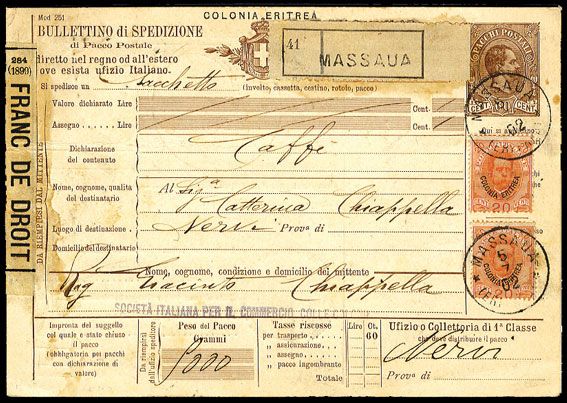 COLONIA ERITREA
Mod 251
BULLETTINO di SPEDIZIONE
di Pacco Postale
diretto nel regno od all'estero
ove esista ufizio Italiano.
41
MASSAUA
PACCHI POSTALI
CENT. CENT.
MASSAUA
284
(1899)
FRANC DE DROIT
DA RIEMPIERSI DAL MITTENTE
Si spedisce un Sacchetto (involto, cassetta, cestino, rotolo, pacco)
Valore dichiarato Lire Cent.
Assegno Lire Cent.
Dichiarazione
del contenuto
Caffè
Nome, cognome, qualità
del destinatario
Al Sig.a Catterina Chiappella
Luogo di destinazione Nervi Prova di
Domicilio del destinatario
COLONIA ERITREA
20
MASSAUA
5
COLONIA ERITREA
20
Nome, cognome, condizione e domicilio del mittente
Rag Giacinto Chiappella
SOCIETÀ ITALIANA PER IL COMMERCIO COLLE
Impronta del suggello
col quale è stato chiuso
il pacco
(obbligatoria pei pacchi
con dichiarazione di
valore)
Da riempirsi
dall'ufizio speditore
Peso del Pacco
Grammi
Tasse riscosse
per trasporto
assicurazione
assegno
pacco ingombrante
Totale
Lire Ct.
60
Ufizio o Collettoria di 1ª Classe
che deve distribuire il pacco
Nervi
Prova di